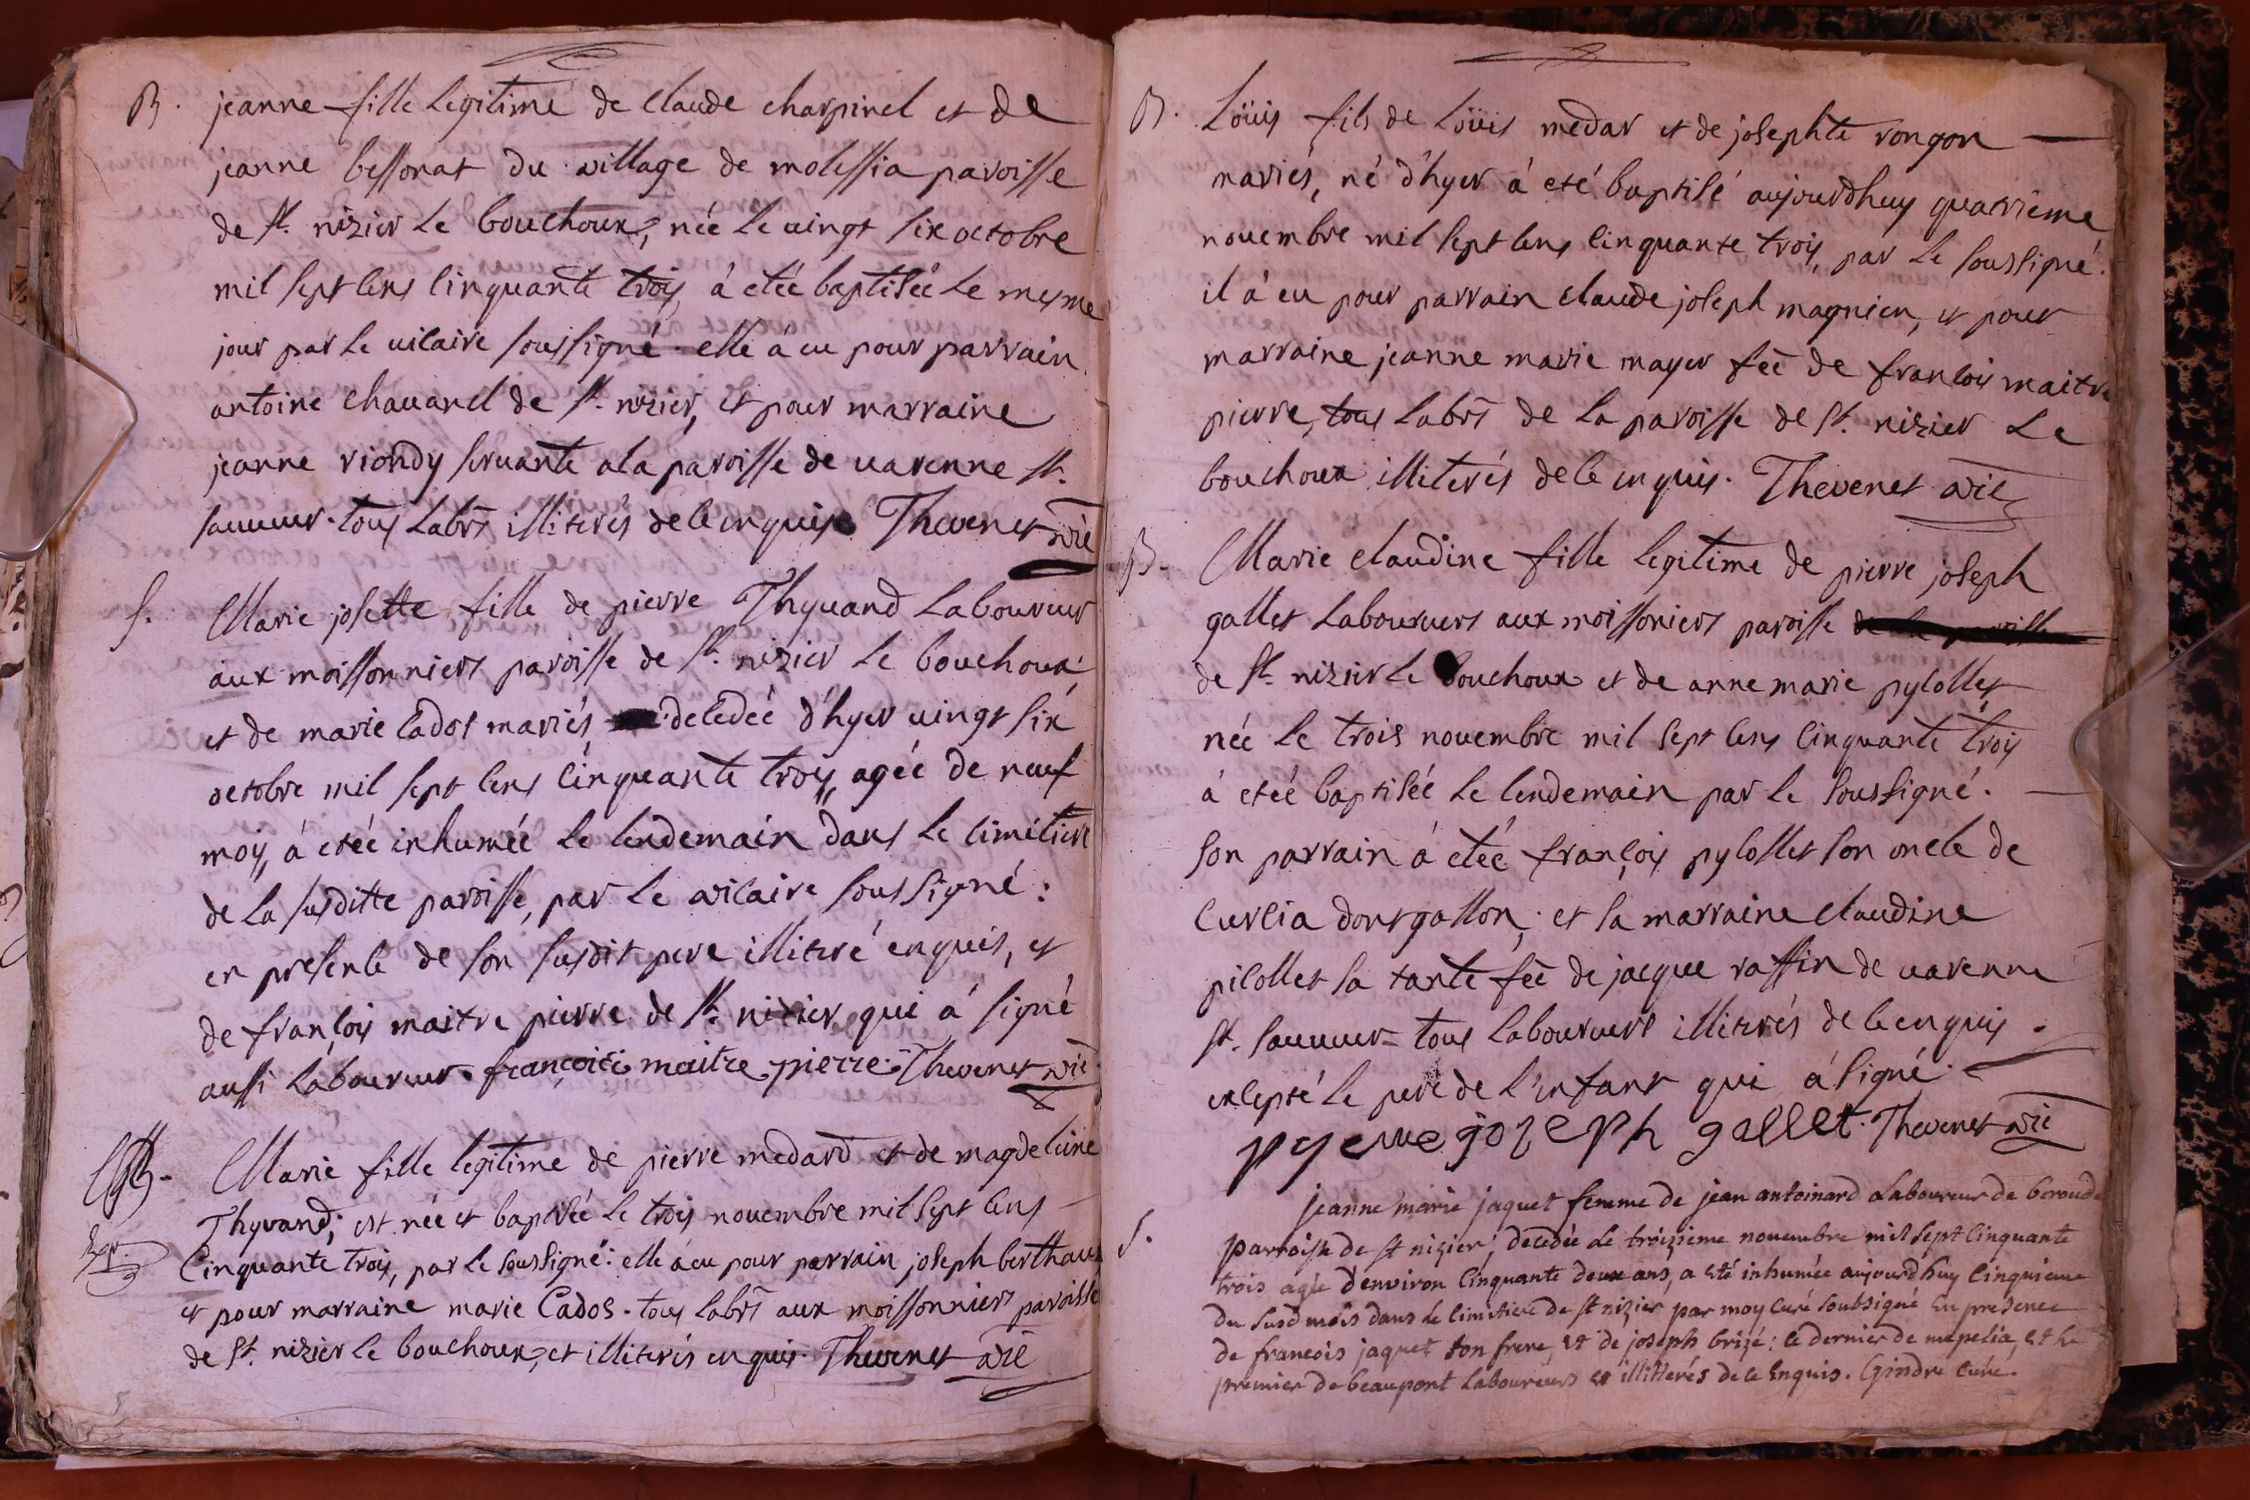 B. jeanne fille legitime de claude charpinel et de
jeanne bessonat du village de molissia paroisse
de st. nizier le bouchoux, née le vingt six octobre
mil sept cens cinquante trois, à etée baptisée le mesme
jour par le vicaire soussigné. elle à eu pour parrain
antoine chavanel de st. nizier, et pour marraine
jeanne riondy servante a la paroisse de varenne st.
sauveur. tous labrs illiterés de ce enquis. Thevenet vic
S. Marie josette fille de pierre Thyvand Laboureur
aux moissonniers paroisse de st. nizier le bouchoux
et de marie cadot mariés decedéé d'hyer vingt six
octobre mil sept cens cinquante trois, agéé de neuf
mois, à etéé inhuméé le lendemain dans le cimitiere
de la susditte paroisse, par le vicaire soussigné :
en presence de son susdit pere illiteré enquis, et
de françois maitre pierre de st. nizier qui à signé
aussi laboureur. françois maitre pierre. Thevenet vic
B. Marie fille legitime de pierre medard et de magdeleine
Thyvand; est née et baptisée le trois novembre mil sept cens
cinquante trois, par le soussigné : elle à eu pour parrain joseph berthaud
et pour marraine marie Cados. tous labrs aux moissonniers paroisse
de st. nizier le bouchoux, et illiterés enquis. Thevenet vic
B. Loüis fils de Loüis medar et de josephte rongon
mariés, né d'hyer à eté baptisé aujourdhuy quatrieme
novembre mil sept cens cinquante trois, par le soussigné.
il à eu pour parrain claude joseph magnien, et pour
marraine jeanne marie mayer fẽe de françois maitre
pierre, tous labrs de la paroisse de st. nizier le
bouchoux illiterés de ce enquis. Thevenet vic
B. Marie claudine fille legitime de pierre joseph
gallet laboureurs aux moissoniers paroisse
de st. nizier le bouchoux et de anne marie pylollet
née le trois novembre mil sept cens cinquante trois
à etéé baptiséé le lendemain par le soussigné.
son parrain à etéé françois pylollet son oncle de
curcia dontgallon; et sa marraine claudine
pilollet sa tante fẽe de jacque raffin de varenne
st. sauveur tous laboureurs illiterés de ce enquis.
excepté le pere de l'enfant qui à signé.
pyerre jozeph gallet. Thevenet vic
jeanne marie jaquet femme de jean antoinard Laboureur de beroude
S. parroisse de st nizier, decedée le troizieme novembre mil sept cinquante
trois agée d'environ cinquante deux ans, a eté inhumée aujourdhuy cinquieme
du susd mois dans le cimitiere de st nizier par moy curé soubsigné en presence
de francois jaquet son frere, et de joseph brizé : le dernier de mepelia, et le
premier de beaupont laboureurs et illitterés de ce enquis. Gindre curé.